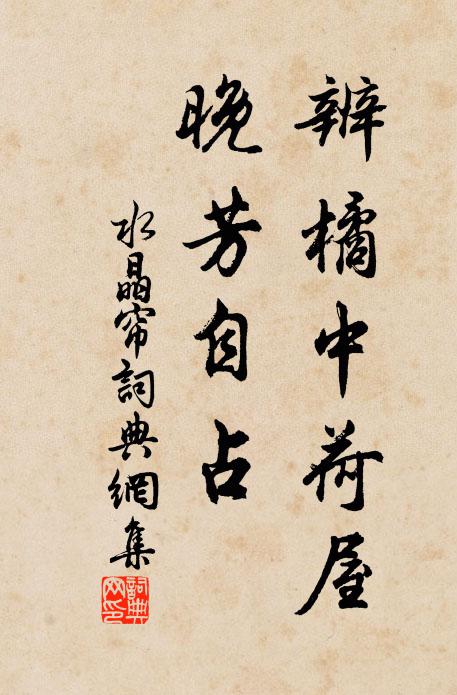 辨橘中荷屋
晚芳自占
水晶帘詞典網集
詞典网印